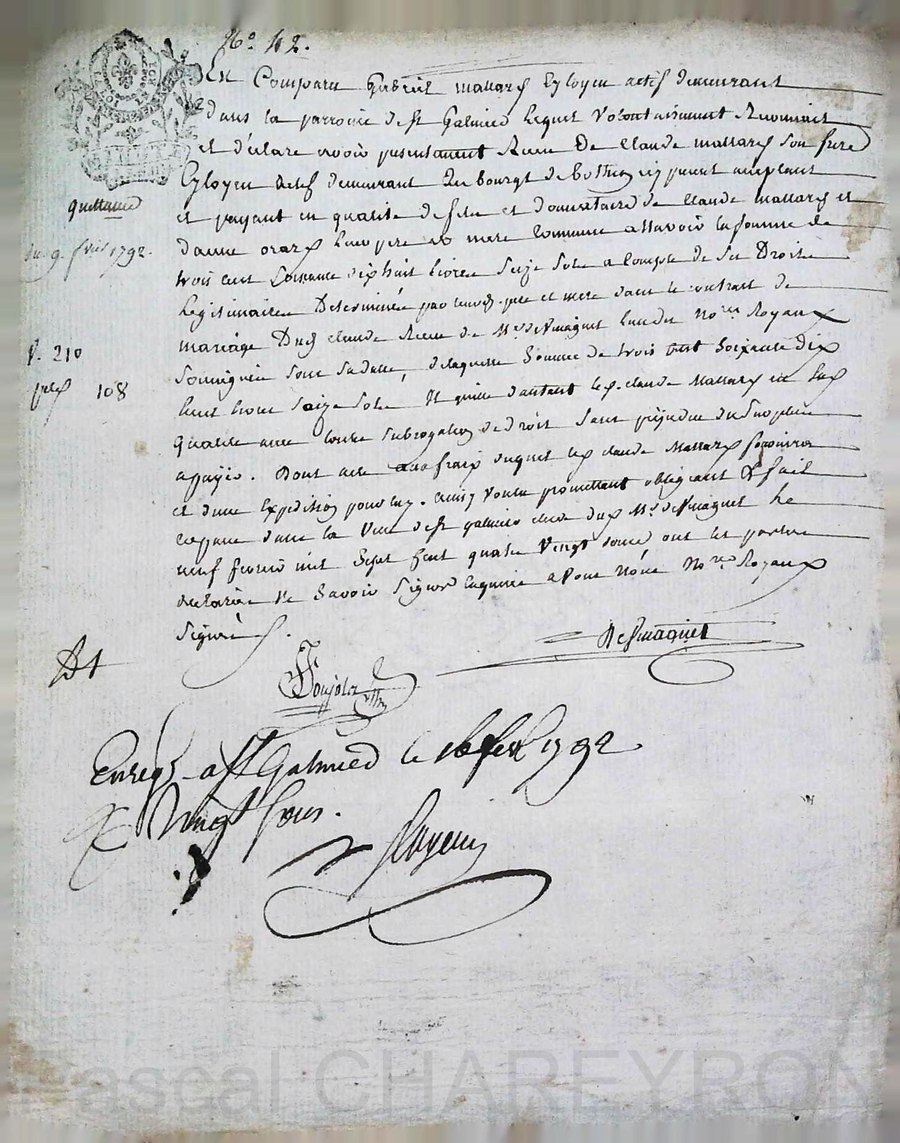 No. 42.
Est Comparu Gabriel mattaré Cytoyen actif demeurant
dans la parroisse de st Galmier Lequel Volontairement Reconnait
et déclare avoir presentement Recu De Claude mattaré son frere
Cytoyen actif demeurant au bourgt de bothéon icy present acceptant
quittance
et payant en qualité de et donnataire de Claude mattaré et
du 9. fvrier 1792.
d'anne pere et mere commune assavoir la somme de
trois cent Soixante dix huit livres Seize Sols a Compte de Ses Droits
Legitimaires Determinée par leurs pere et mere dans le contrat de
mariage Dud. claude Recu de Me. desmaguet l'un des Nores. Royaux
V. 210
108
Soussignés sous sa datte, delaquelle Somme de trois cent Soixante dix
huit livres Saize Sols Il quitte d'autant led. claude Mattaré en sad.
qualité avec toutte subrogation de droit Sans préjudice du Surplus
a payé. Dont acte aux fraix duquel led. claude Mattaré fournira
et d'une Expédition pour luy. ainsy Voulu promettant obligeant &c fait
et passé dans la Ville de st galmier étude dud. Me. desmaguet Le
neuf fevrier mil Sept Cent quatre Vingt douze ont les parties
declarées Ne Savoir Signer Enquises a Nous Nores. Royaux
Signés.
Desmaguet
Poujola
Enregé. a St Galmier le 16 fevr 1792
vingt sous.
Pascal CHAREYRON